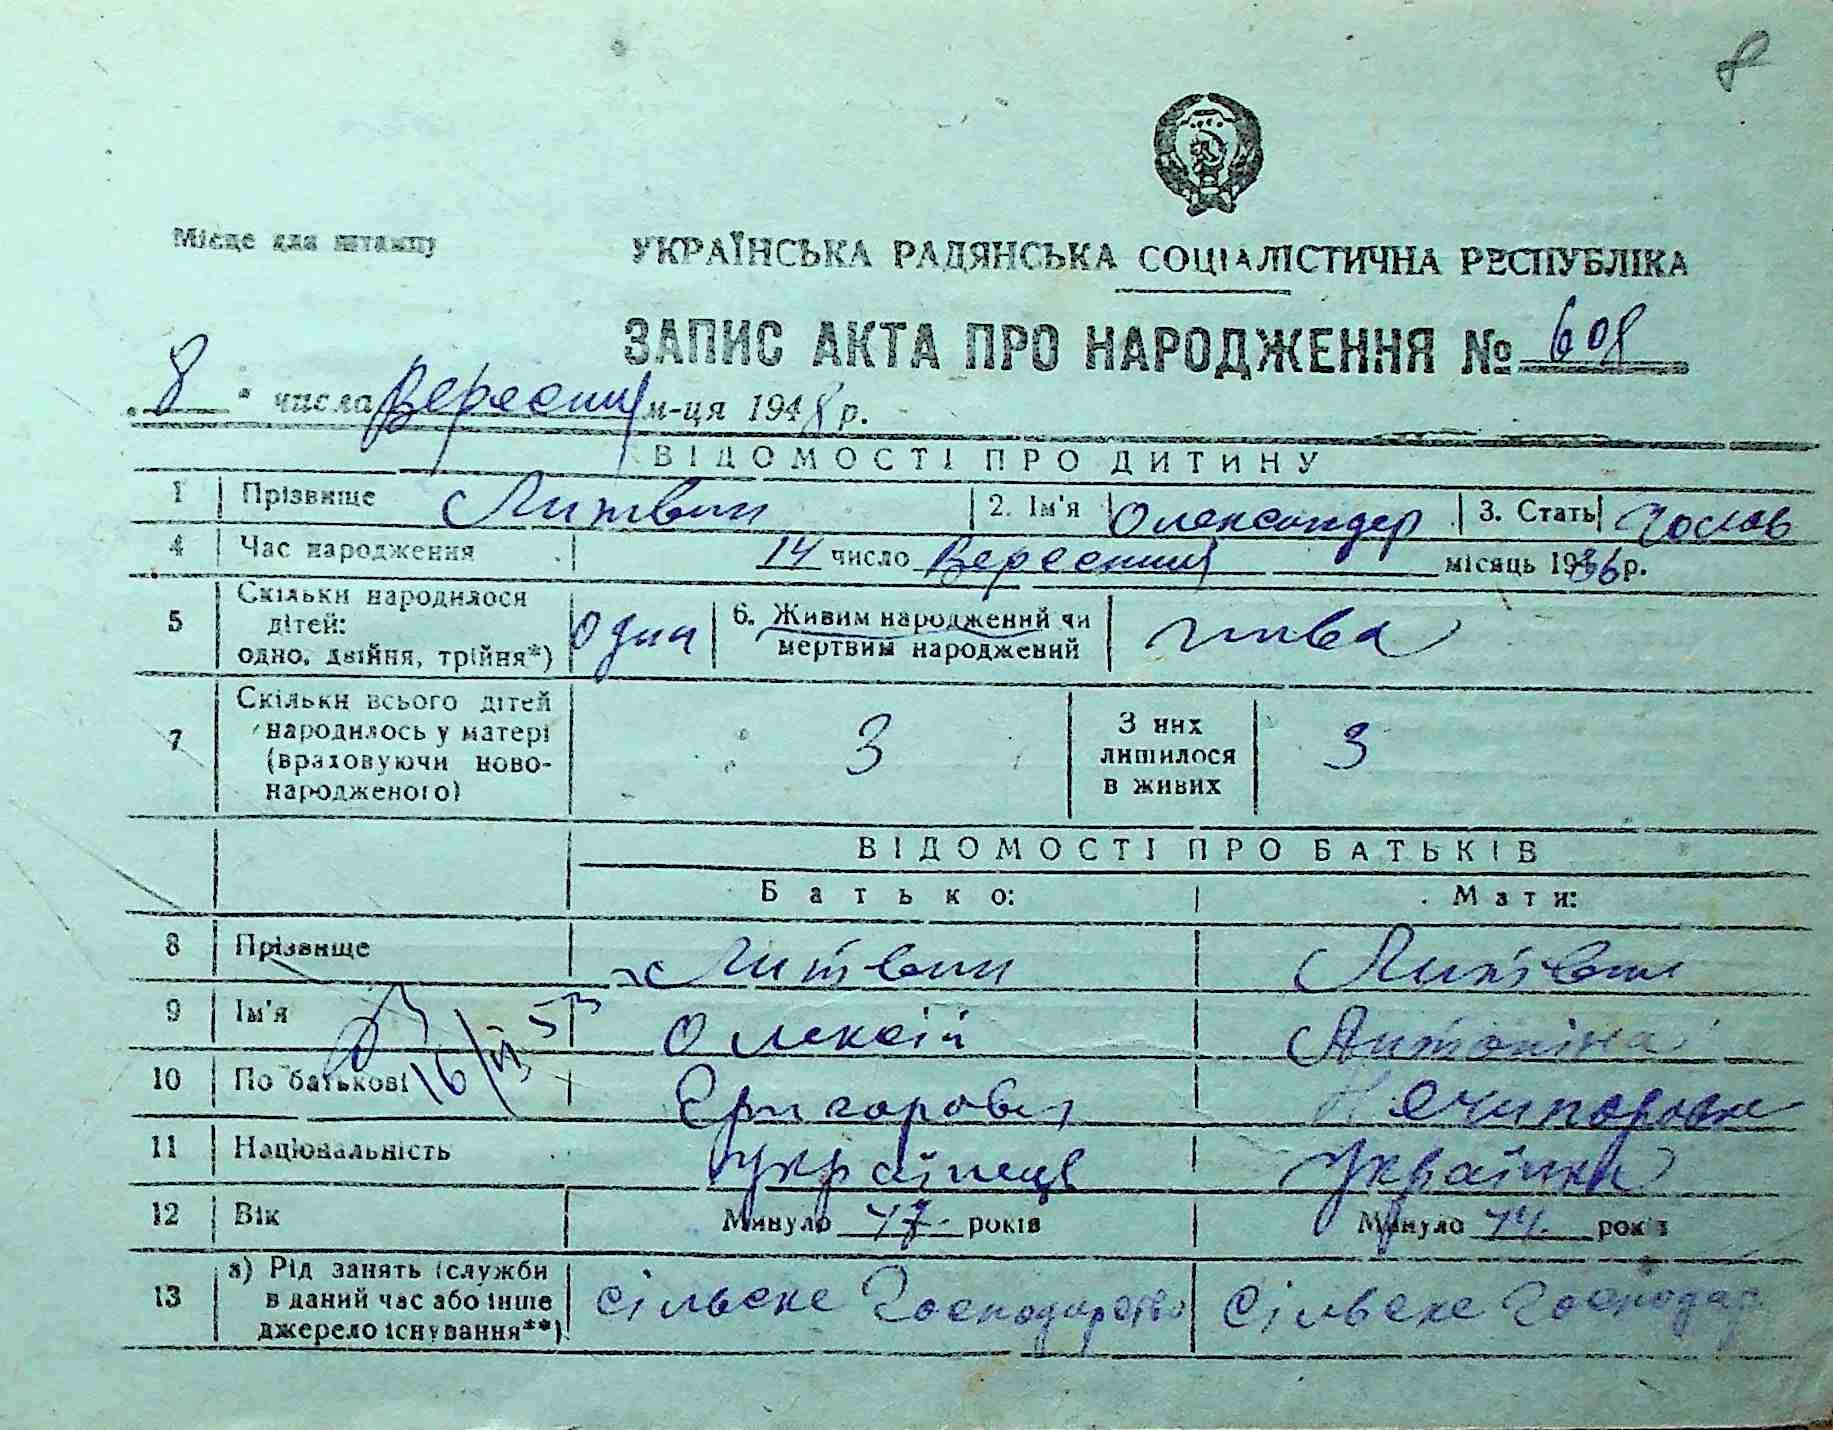 8
Місце для штампу
УКРАЇНСЬКА РАДЯНСЬКА СОЦІАЛІСТИЧНА РЕСПУБЛІКА
ЗАПИС АКТА ПРО НАРОДЖЕННЯ № 608
„8" числа Вересния м-ця 1948 р.
ВІДОМОСТІ ПРО ДИТИНУ
1 Прізвище Литвин 2. Ім'я Олександер 3. Стать
4 Час народження 14 число Вересния місяць 1936 р.
5 Скільки народилося дітей: одно, двійня, трійня*) один 6. Живим народжений чи мертвим народжений
7 Скільки всього дітей народилось у матері (враховуючи новонародженого) 3 З них лишилося в живих 3
ВІДОМОСТІ ПРО БАТЬКІВ
Батько: Мати:
8 Прізвище Литвин Литвин
9 Ім'я Олексій Антоніна
10 По батькові Григорович Нечипоровна
16/VI 53
11 Національність Українець Українка
12 Вік Минуло 47 років Минуло 44 років
13 а) Рід занять (служби в даний час або інше джерело існування**) Сільське Господарство Сільське Господар